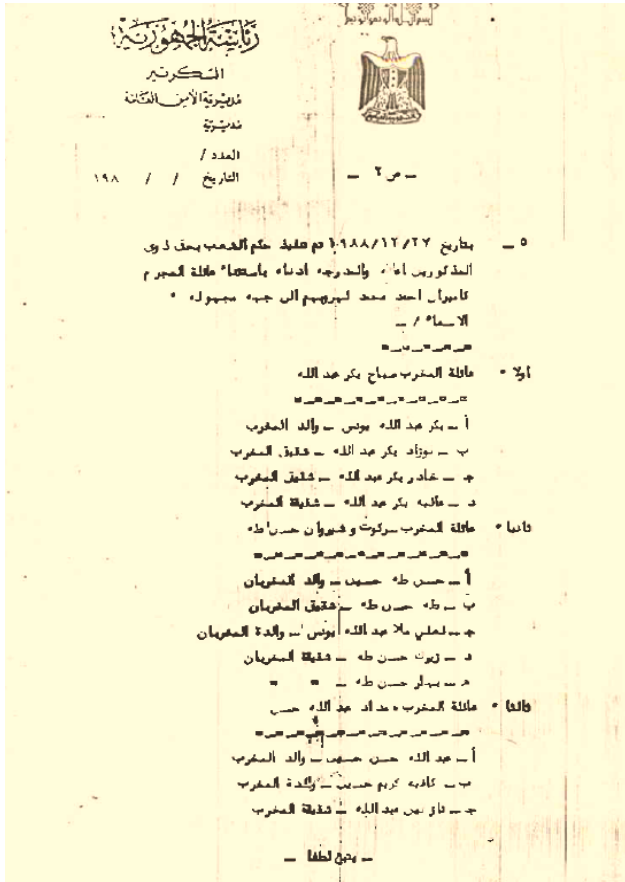 بسم الله الرحمن الرحيم
رئاسة الجمهورية
السكرتير
مديرية الأمن العامة
مديرية
العدد /
التاريخ / / ١٩٨
ــ ص ٢ ــ
٥ ــ بتاريخ ١٩٨٨/١٢/٢٧ تم تنفيذ حكم الشعب بحق ذوي
المذكورين اعلاه والمدرجه ادناه باستثناء عائلة المجرم
كامران احمد محمد لهروبهم الى جهه مجهوله ٠
الاسماء / ــ
اولا ٠ عائلة المخرب صباح بكر عبد الله
أ ــ بكر عبد الله يونس ــ والد المخرب
ب ــ نوزاد بكر عبد الله ــ شقيق المخرب
جـ ــ خادر بكر عبد الله ــ شقيق المخرب
د ــ بكر عبد الله ــ شقيقة المخرب
ثانيا ٠ عائلة المخرب سركوت و شيروان حسن طه
أ ــ حسن طه حسين ــ والد المخربان
ب ــ طه حسن طه ــ شقيق المخربان
جـ ــ لعلي ملا عبد الله يونس ــ والدة المخربان
د ــ زيرك حسن طه ــ شقيقة المخربان
هـ ــ حسن طه ــ " "
ثالثا ٠ عائلة المخرب عبد الله حسن
أ ــ عبد الله حسن حسين ــ والد المخرب
ب ــ كافيه كريم حسين ــ والدة المخرب
جـ ــ عبد الله ــ شقيقة المخرب
ــ يتبع لطفا ــ